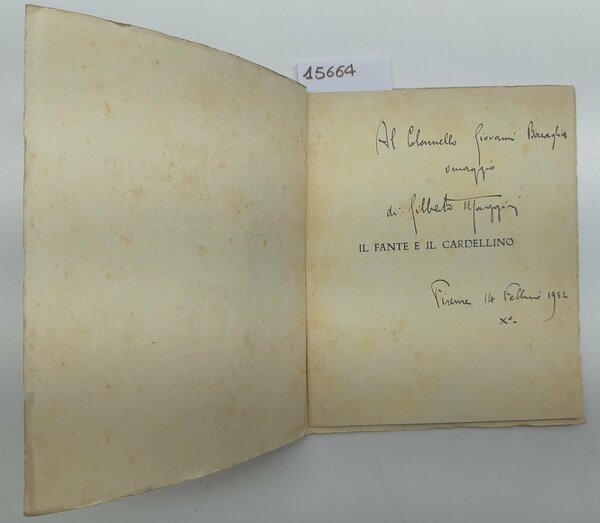 15664
Al Colonnello Giovanni
omaggio
di Gilberto Maggini
IL FANTE E IL CARDELLINO
Firenze 14 Febbraio 1932
X°-